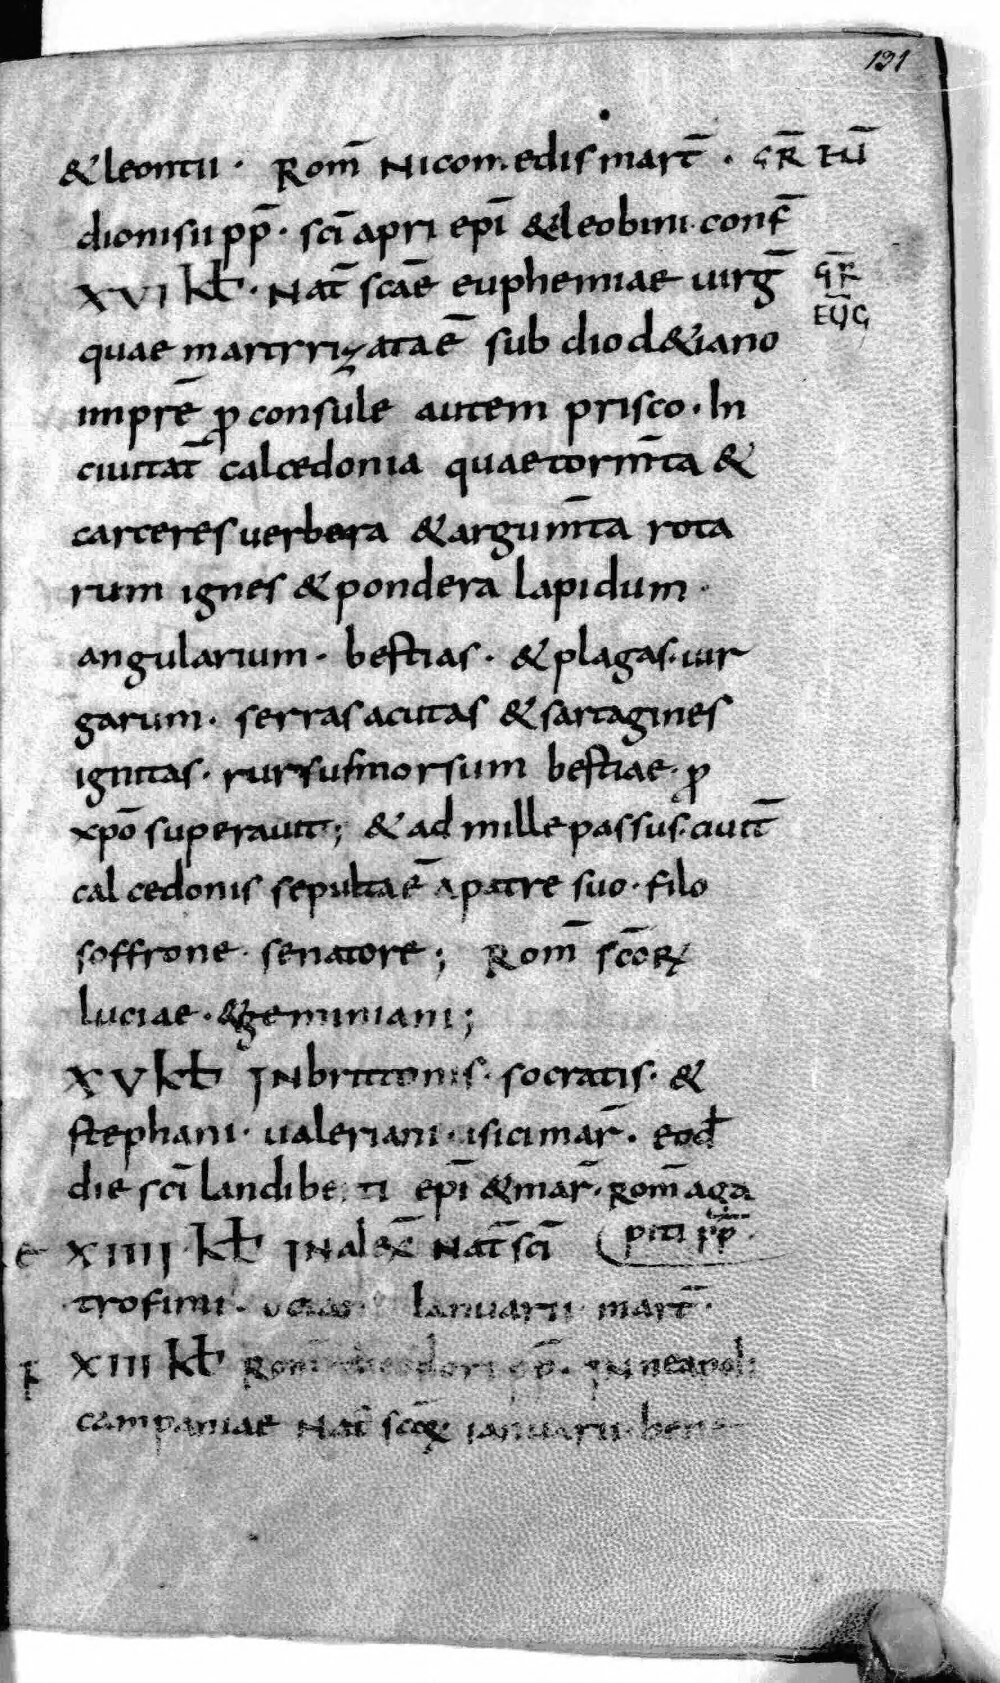 131
&leontii · Rom̄ Nicomedis mart̄ · GR̄ TŪ
dionisii pp̄ · sc̄i apri ep̄i &leobini · conf̄
XVI kl̄ · Nat̄ scāe euphemiae uirḡ GR̄
EŪG
quae martrrizata ē sub diod&iano
impr̄e ꝓconsule autem prisco · In
ciuitat̄ calcedonia quae torm̄ta &
carceres uerbera &argum̄ta rota
rum ignes &pondera lapidum ·
angularium · bestias · &plagas · uir
garum · serras acutas &sartagines
ignitas · rursus morsum bestiae · ꝓ
xp̄o superauit ; &ad mille passus · ciuit̄
calcedonis sepulta ē a patre suo · filo
soffrone · senatore ; Rom̄ sc̄oꝝ
luciae · &geminiani ;
XV kl̄ IN brittonis · socratis · &
stephani · ualeriani · isici mar̄ · eod̄
die sc̄i landibe ti ep̄i &mar̄ · Rom̄ aga
piti pp̄ ·
e XIIII · kl̄ IN alex̄ Nat̄ sc̄i
trofimi · Ianuarii mart̄ ·
F XIII kl̄ Rom̄ IN neapoli
campaniae Nat̄ sc̄oꝝ ianuarii ·